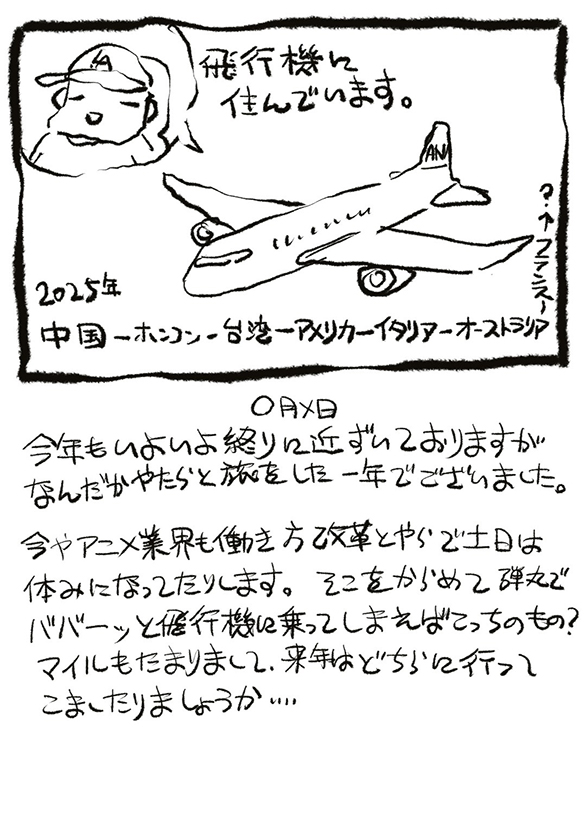 LA
飛行機に
住んでいます。
AN
2025年
中国ーホンコンー台湾ーアメリカーイタリアーオーストラリア
ーフランス→?
〇月×日
今年もいよいよ終りに近ずいておりますが
なんだかやたらと旅をした一年でございました。
今やアニメ業界も働き方改革とやらで土日は
休みになってたりします。そこをからめて弾丸で
ババーッと飛行機に乗ってしまえばこっちのもの?
マイルもたまりまして、来年はどちらに行って
こましたりましょうか····